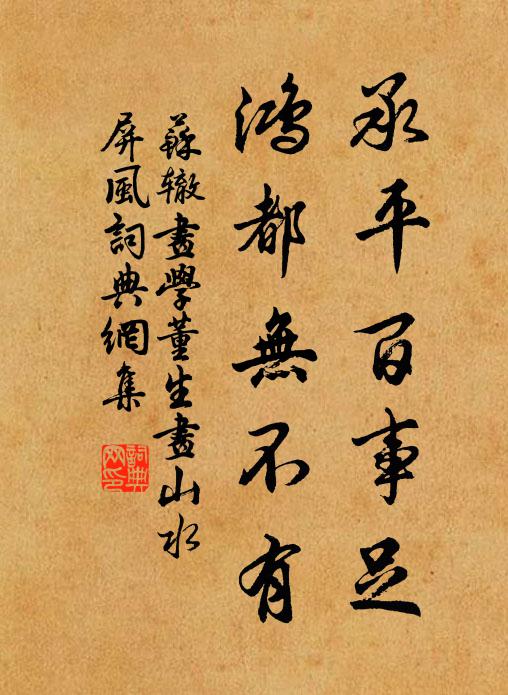 承平百事足
鴻都無不有
蘇辙畫學董生畫山水
屏風詞典網集
詞典
网印